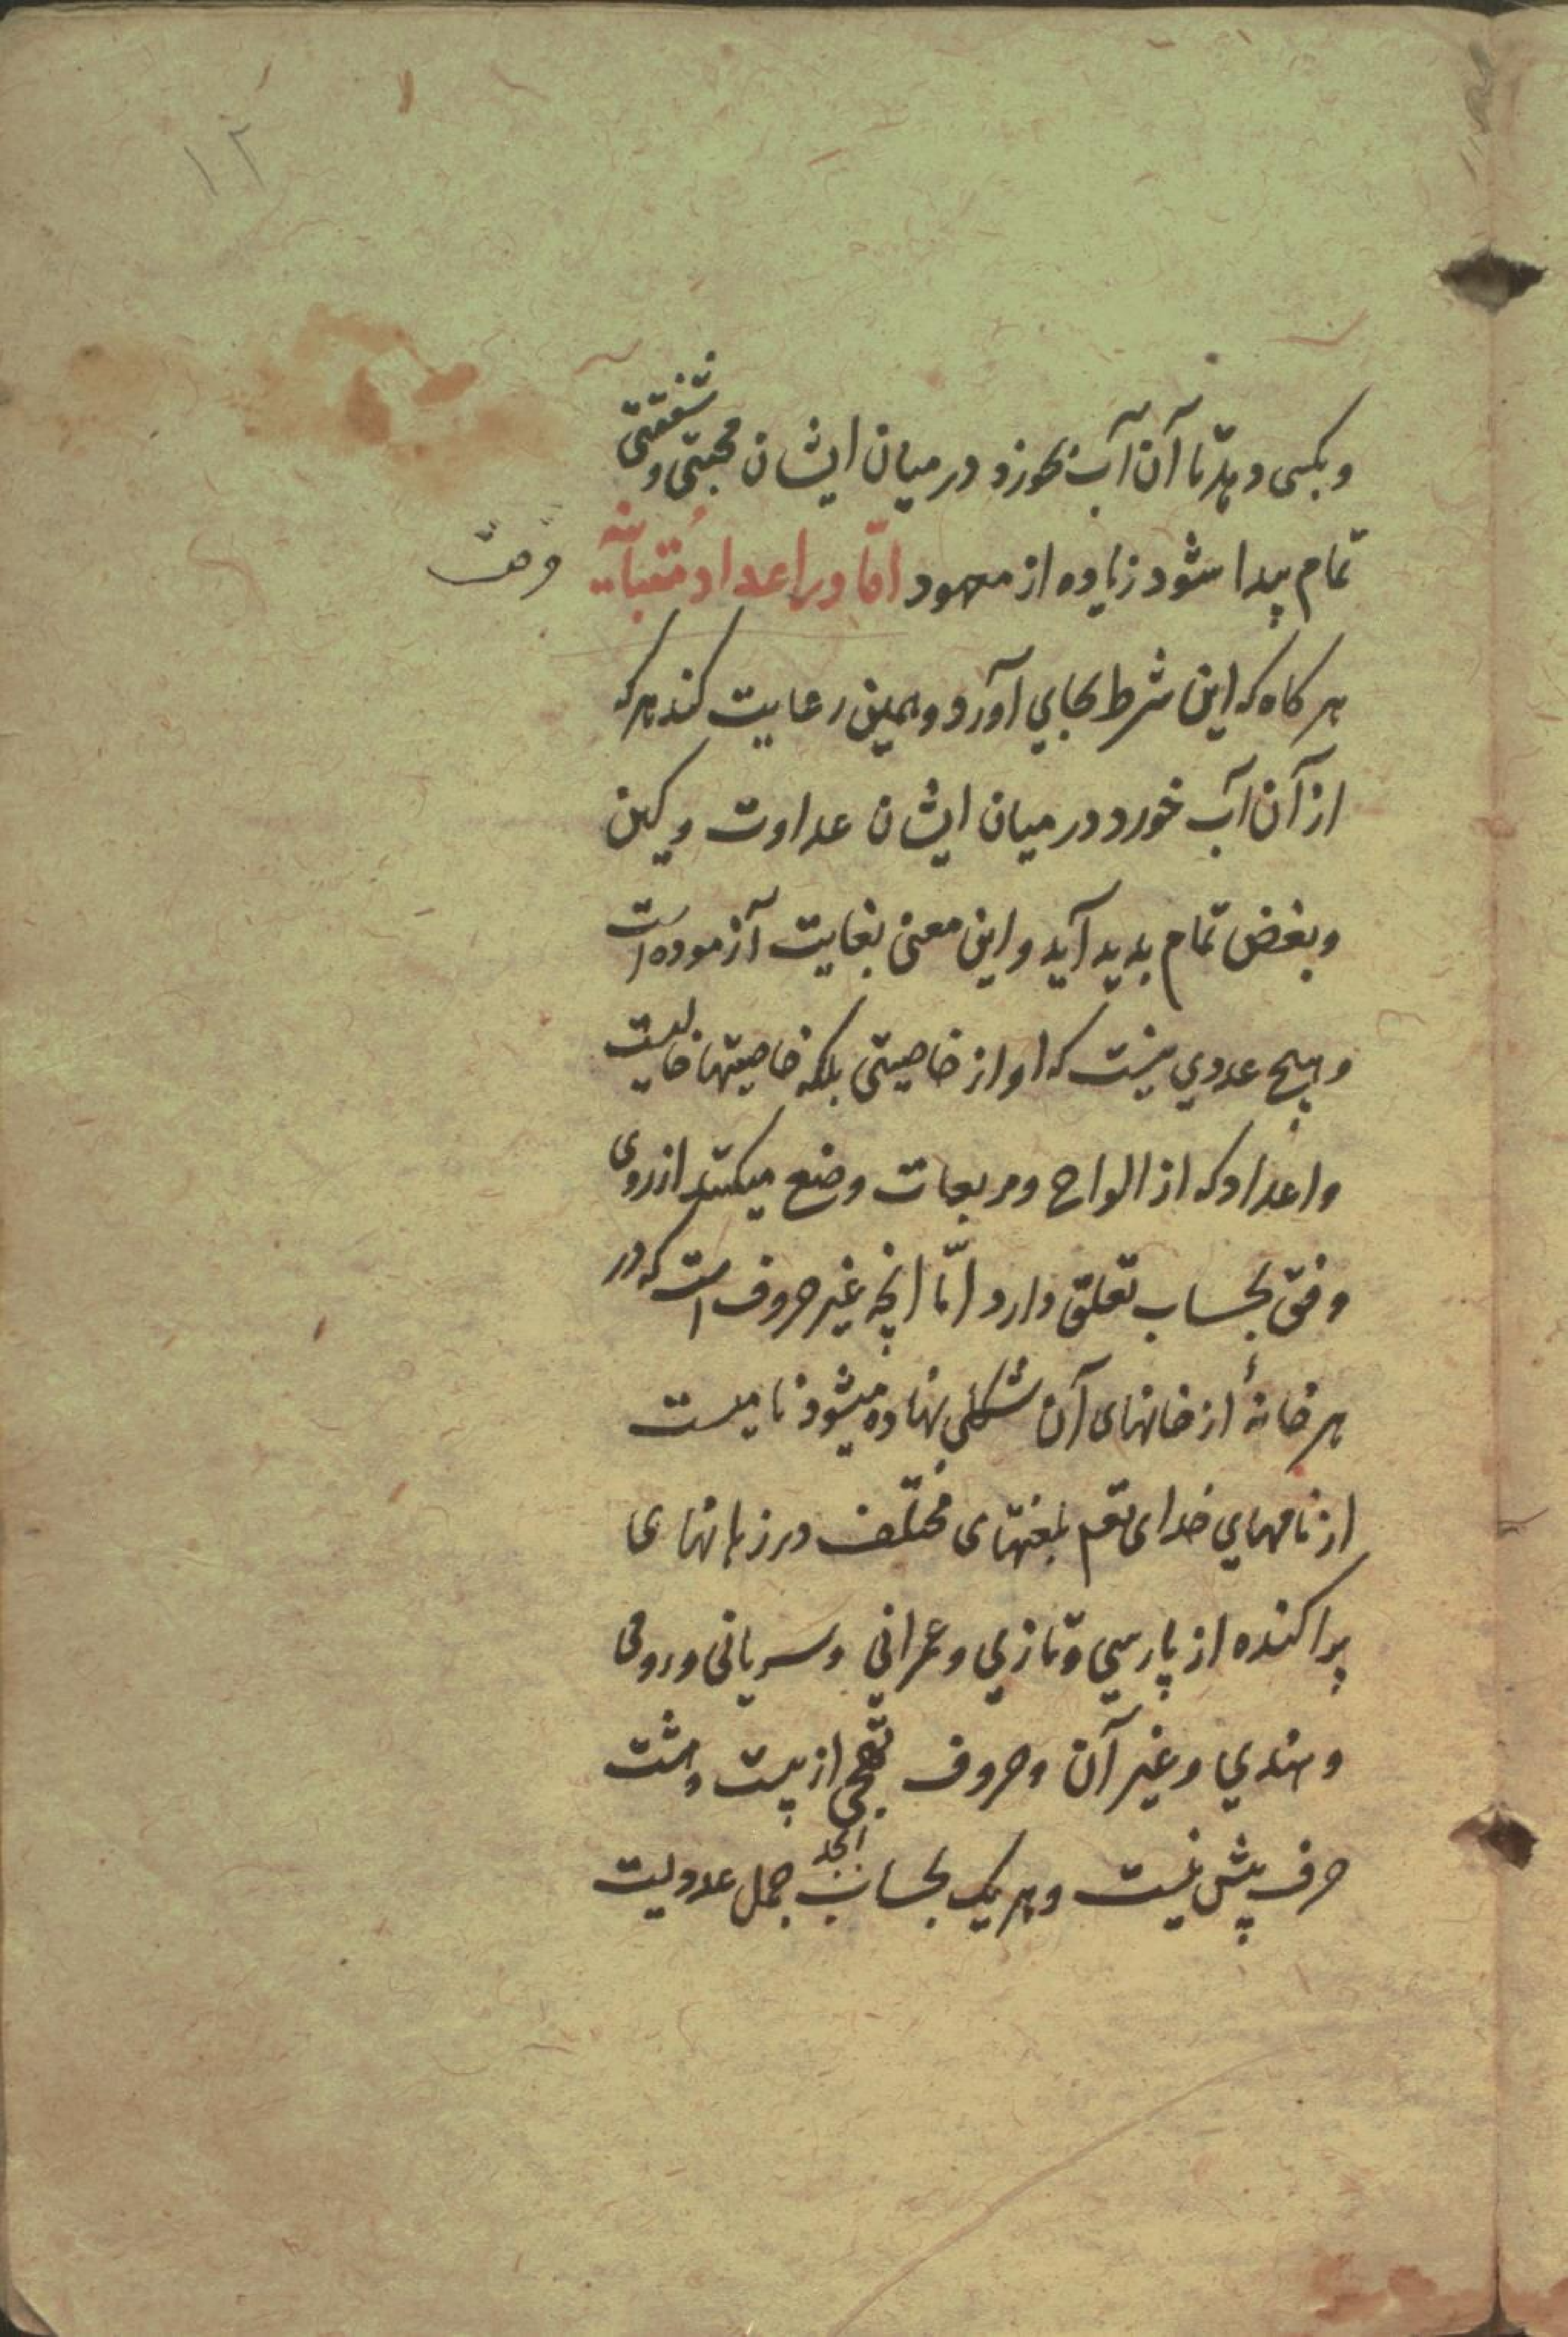 ۱۲
و بکسی دهد تا آن آب بخورد و در میان ایشان محبتی و شفقتی
تمام پیدا شود زیاده از معهود امّا در اعداد مُتَبانیه
هر کاه که این شرط بجای آورد و همین رعایت کند هر که
از آن آب خورد در میان ایشان عداوت و کین
و بغض تمام بدید آید و این معنی بغایت آزموده است
و هیچ عددی نیست که او از خاصیتی بلکه خاصیتها خالیست
و اعداد که از الواح و مربعات وضع میکنند از روی
وفق بحساب تعلق دارد امّا انچه غیر حروف است که در
هر خانهٔ از خانهای آن شکلی نهاده میشود نامیست
از نامهای خدای تعم بلغتهای مختلف در زبانهای
پراکنده از پارسی و تازی و عبرانی و سریانی و رومی
و هندی و غیر آن و حروف تهجی از بیست و هشت
حرف بیش نیست و هر یک بحساب ابجد جمل عددیست